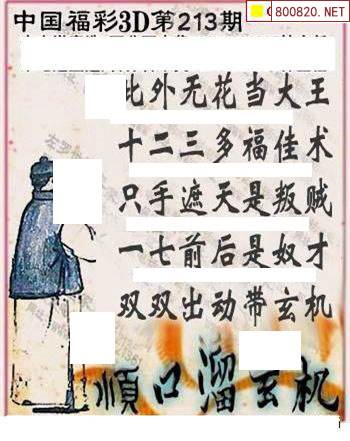 800820.NET
中国福彩3D第213期
此外无花当大王
十二三多福佳术
只手遮天是叛贼
一七前后是奴才
双双出动带玄机
順口溜玄机